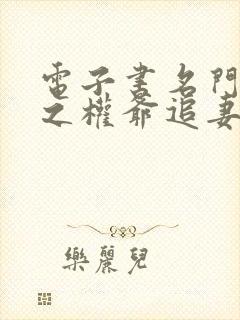 電子書名門
之權爺追妻
樂麗兒